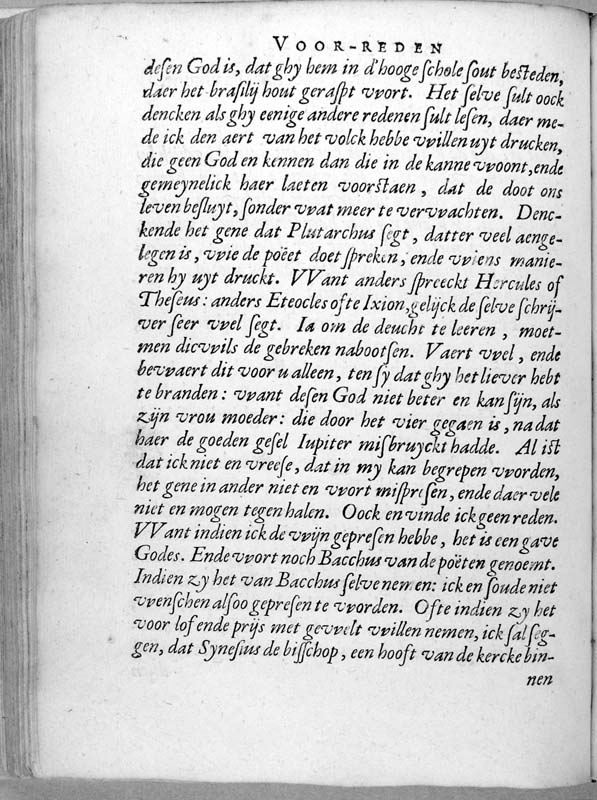 VOOR-REDEN
deſen God is, dat ghy hem in d'hooge ſchole ſout beſteden,
daer het braſilij hout geraſpt vvort. Het ſelve ſult oock
dencken als ghy eenige andere redenen ſult leſen, daer me-
de ick den aert van het volck hebbe vvillen uyt drucken,
die geen God en kennen dan die in de kanne vvoont, ende
gemeynelick haer laeten voorſtaen, dat de doot ons
leven beſluyt, ſonder vvat meer te vervvachten. Denc-
kende het gene dat Plutarchus ſegt, datter veel aenge-
legen is, vvie de poëet doet ſpreken, ende vviens manie-
ren hy uyt druckt. VVant anders ſpreeckt Hercules of
Theſeus: anders Eteocles ofte Ixion, gelijck de ſelve ſchrij-
ver ſeer vvel ſegt. Ia om de deucht te leeren, moet-
men dicvvils de gebreken nabootſen. Vaert vvel, ende
bevvaert dit voor u alleen, ten ſy dat ghy het liever hebt
te branden: vvant deſen God niet beter en kan ſijn, als
zijn vrou moeder: die door het vier gegaen is, na dat
haer de goeden geſel Iupiter miſbruyckt hadde. Al iſt
dat ick niet en vreeſe, dat in my kan begrepen vvorden,
het gene in ander niet en vvort miſpreſen, ende daer vele
niet en mogen tegen halen. Oock en vinde ick geen reden.
VVant indien ick de vvijn gepreſen hebbe, het is een gave
Godes. Ende vvort noch Bacchus van de poëten genoemt.
Indien zy het van Bacchus ſelve nemen: ick en ſoude niet
vvenſchen alſoo gepreſen te vvorden. Ofte indien zy het
voor lof ende prijs met gevvelt vvillen nemen, ick ſal ſeg-
gen, dat Syneſius de biſſchop, een hooft van de kercke bin-
nen